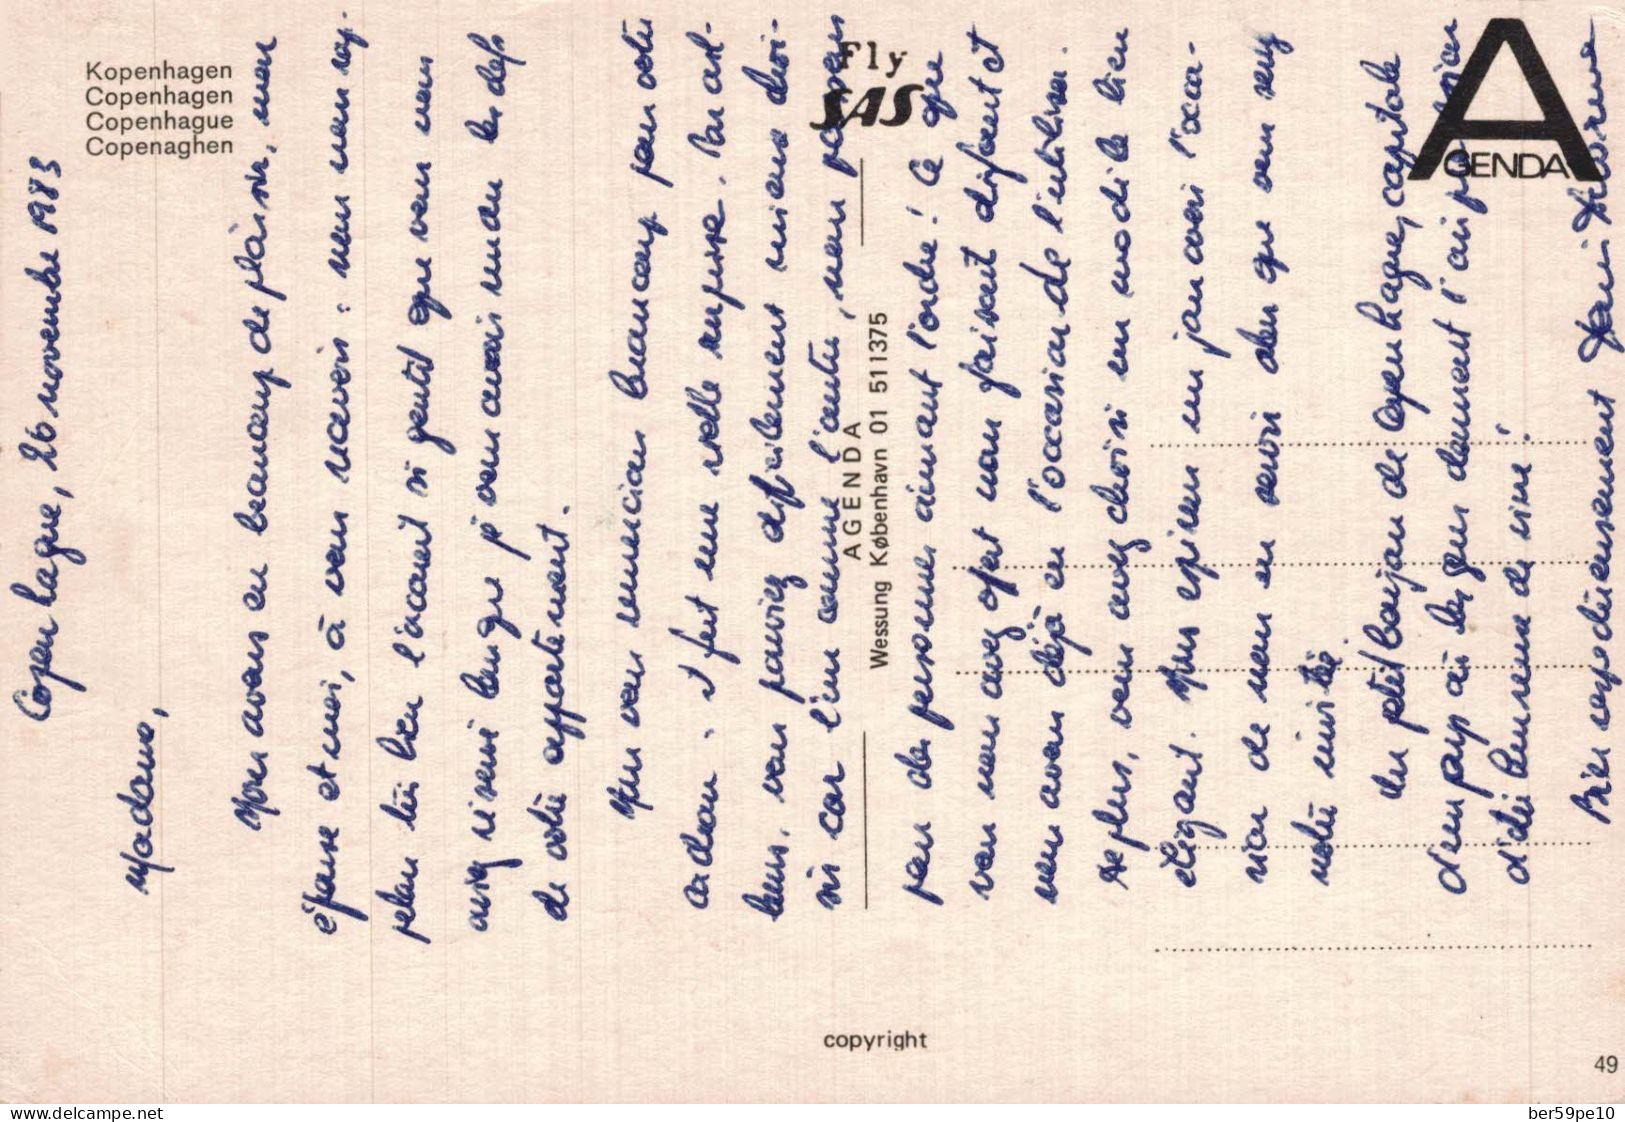 Kopenhagen
Copenhagen
Copenhague
Copenaghen
Fly
SAS
AGENDA
AGENDA
Wessung København 01 511375
copyright
49
Copenhague, 26 novembre 1983
Madame,
Nous avons eu beaucoup de plaisir, mon
épouse et moi, à vous recevoir : nous nous rap-
pelons très bien l'accueil si gentil que vous nous
aviez réservé lorsque je vous avais remis les clefs
de votre appartement.
Nous vous remercions beaucoup pour votre
cadeau : il fut une réelle surprise. Par ail-
leurs, vous pouviez difficilement mieux choi-
sir car l'un comme l'autre, nous passons
pour des personnes aimant l'ordre ! Ce que
vous nous avez offert nous faisait défaut et
nous avons déjà eu l'occasion de l'utiliser.
De plus, vous avez choisi un modèle bien
élégant. Nous espérons un jour avoir l'occa-
sion de nous en servir dès que vous serez
notre invitée.
Un petit bonjour de Copenhague, capitale
d'un pays où les gens donnent l'impression
d'être heureux de vivre !
Bien respectueusement